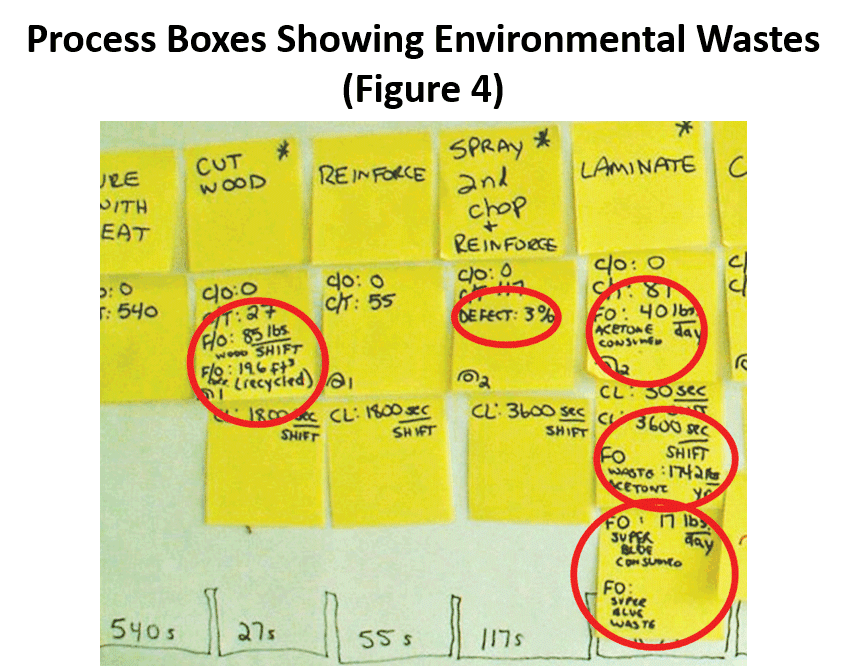 Process Boxes Showing Environmental Wastes
(Figure 4)
URE
WITH
EAT
CUT
WOOD
*
REINFORCE
SPRAY *
2nd
chop
+
REINFORCE
*
LAMINATE
C
: 0
: 540
c/o: 0
C/T: 27
F/O: 85 lbs
WOOD SHIFT
F/O: 19.6 ft³
(recycled)
1
c/o: 0
c/T: 55
1
c/o: 0
C/T: 117
DEFECT: 3%
2
c/o: 0
C/T: 81
FO: 40 lbs
ACETONE day
CONSUMED
2
CL: 1800 sec
SHIFT
CL: 1800 sec
SHIFT
CL: 3600 sec
SHIFT
CL: 30 sec
CL: 3600 sec
FO SHIFT
WASTE: 1742 lbs
ACETONE
FO: 17 lbs
SUPER day
BLUE
CONSUMED
FO:
SUPER
BLUE
WASTE
540 s
27s
55 s
117s